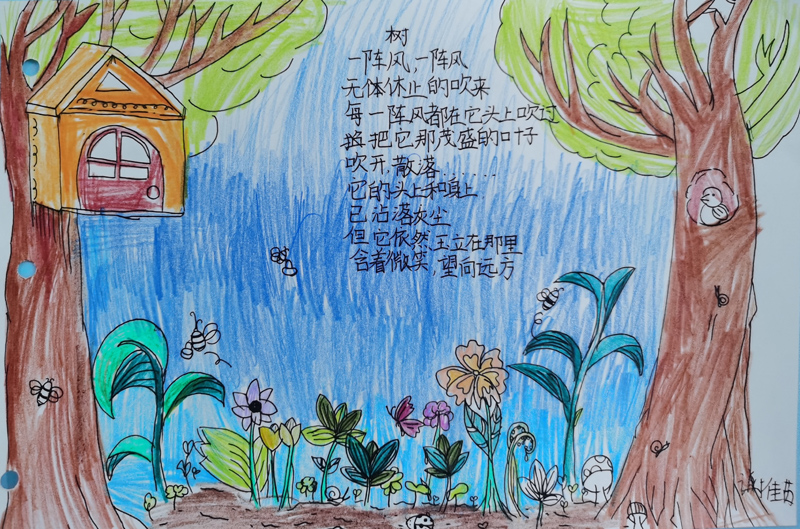 树
一阵风,一阵风
无体休止的吹来
每一阵风都在它头上吹过
将把它那茂盛的叶子
吹开,散落......
它的头上和身上
已沾落灰尘
但它依然玉立在那里
含着微笑,望向远方
佳